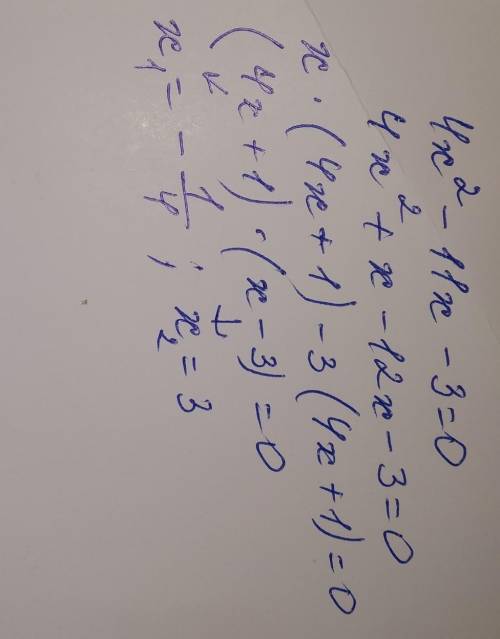 4x² - 11x - 3 = 0
4x² + x - 12x - 3 = 0
x · (4x + 1) - 3 (4x + 1) = 0
(4x + 1) · (x - 3) = 0
↓ ↓
x₁ = - 1/4 ; x₂ = 3